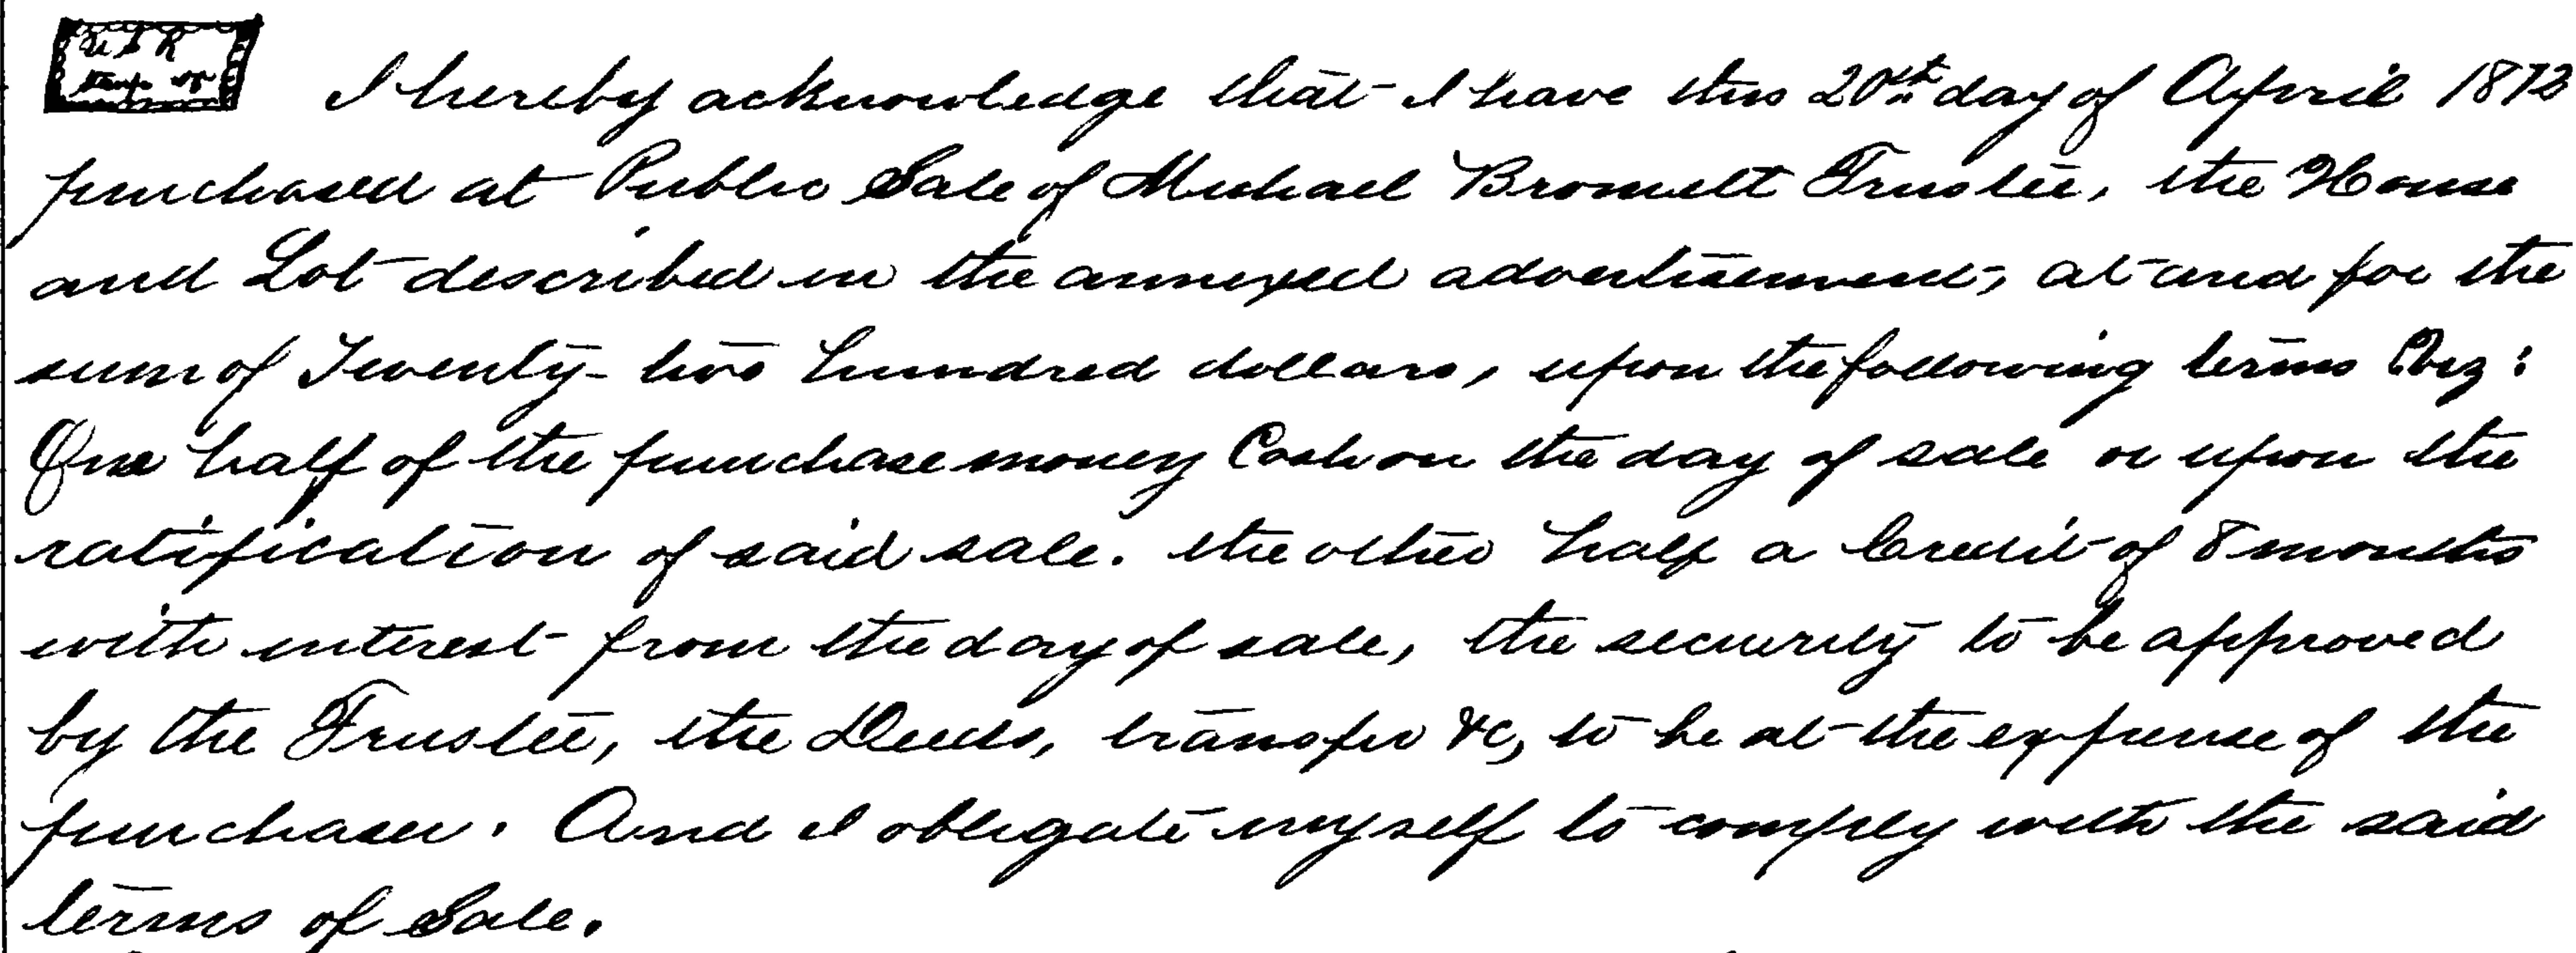 U S R
Stamp
I hereby acknowledge that I have this 20th day of April 1872
purchased at Public Sale of Michael Bromett Trustee, the House
and Lot described in the annexed advertisement, at and for the
sum of Twenty-two hundred dollars, upon the following terms Viz:
One half of the purchase money Cash on the day of sale or upon the
ratification of said sale. the other half a Credit of 8 months
with interest from the day of sale, the security to be approved
by the Trustee, the Deeds, transfer &c, to be at the expense of the
purchaser. And I obligate myself to comply with the said
terms of Sale.